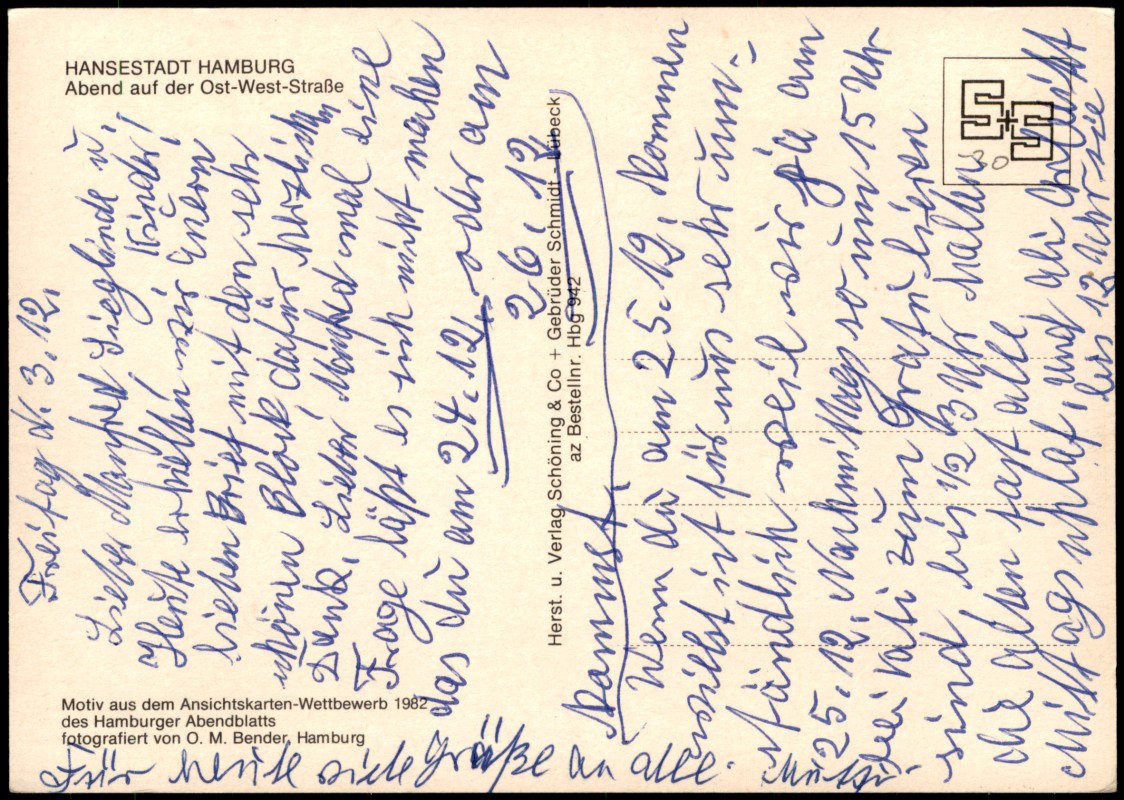 HANSESTADT HAMBURG
Abend auf der Ost-West-Straße
Freitag d. 3. 12.
Lieber Manfred Sieglinde u
Kinder!
Heute erhielten wir Euern
lieben Brief mit den sehr
schönen Block dafür herzlichen
Dank, Lieber Manfred mal eine
Frage läßt es sich nicht machen
das du am 24. 12. oder am
26. 12.
kannst
Wenn du am 25. 12. kommen
willst ist für uns sehr um-
ständlich weil wir ja am
25. 12. Nachmittag so um 15 Uhr
bei Vati zum gratulieren
sind bis 1/2 3 Uhr halten
die alten fast alle
Mittagsschlaf, und die
bis 12 Uhr
Für heute viele Grüße an alle. Mutti.
Herst. u. Verlag Schöning & Co + Gebrüder Schmidt - Lübeck
az Bestellnr. Hbg 942
Motiv aus dem Ansichtskarten-Wettbewerb 1982
des Hamburger Abendblatts
fotografiert von O. M. Bender, Hamburg
S+S
30